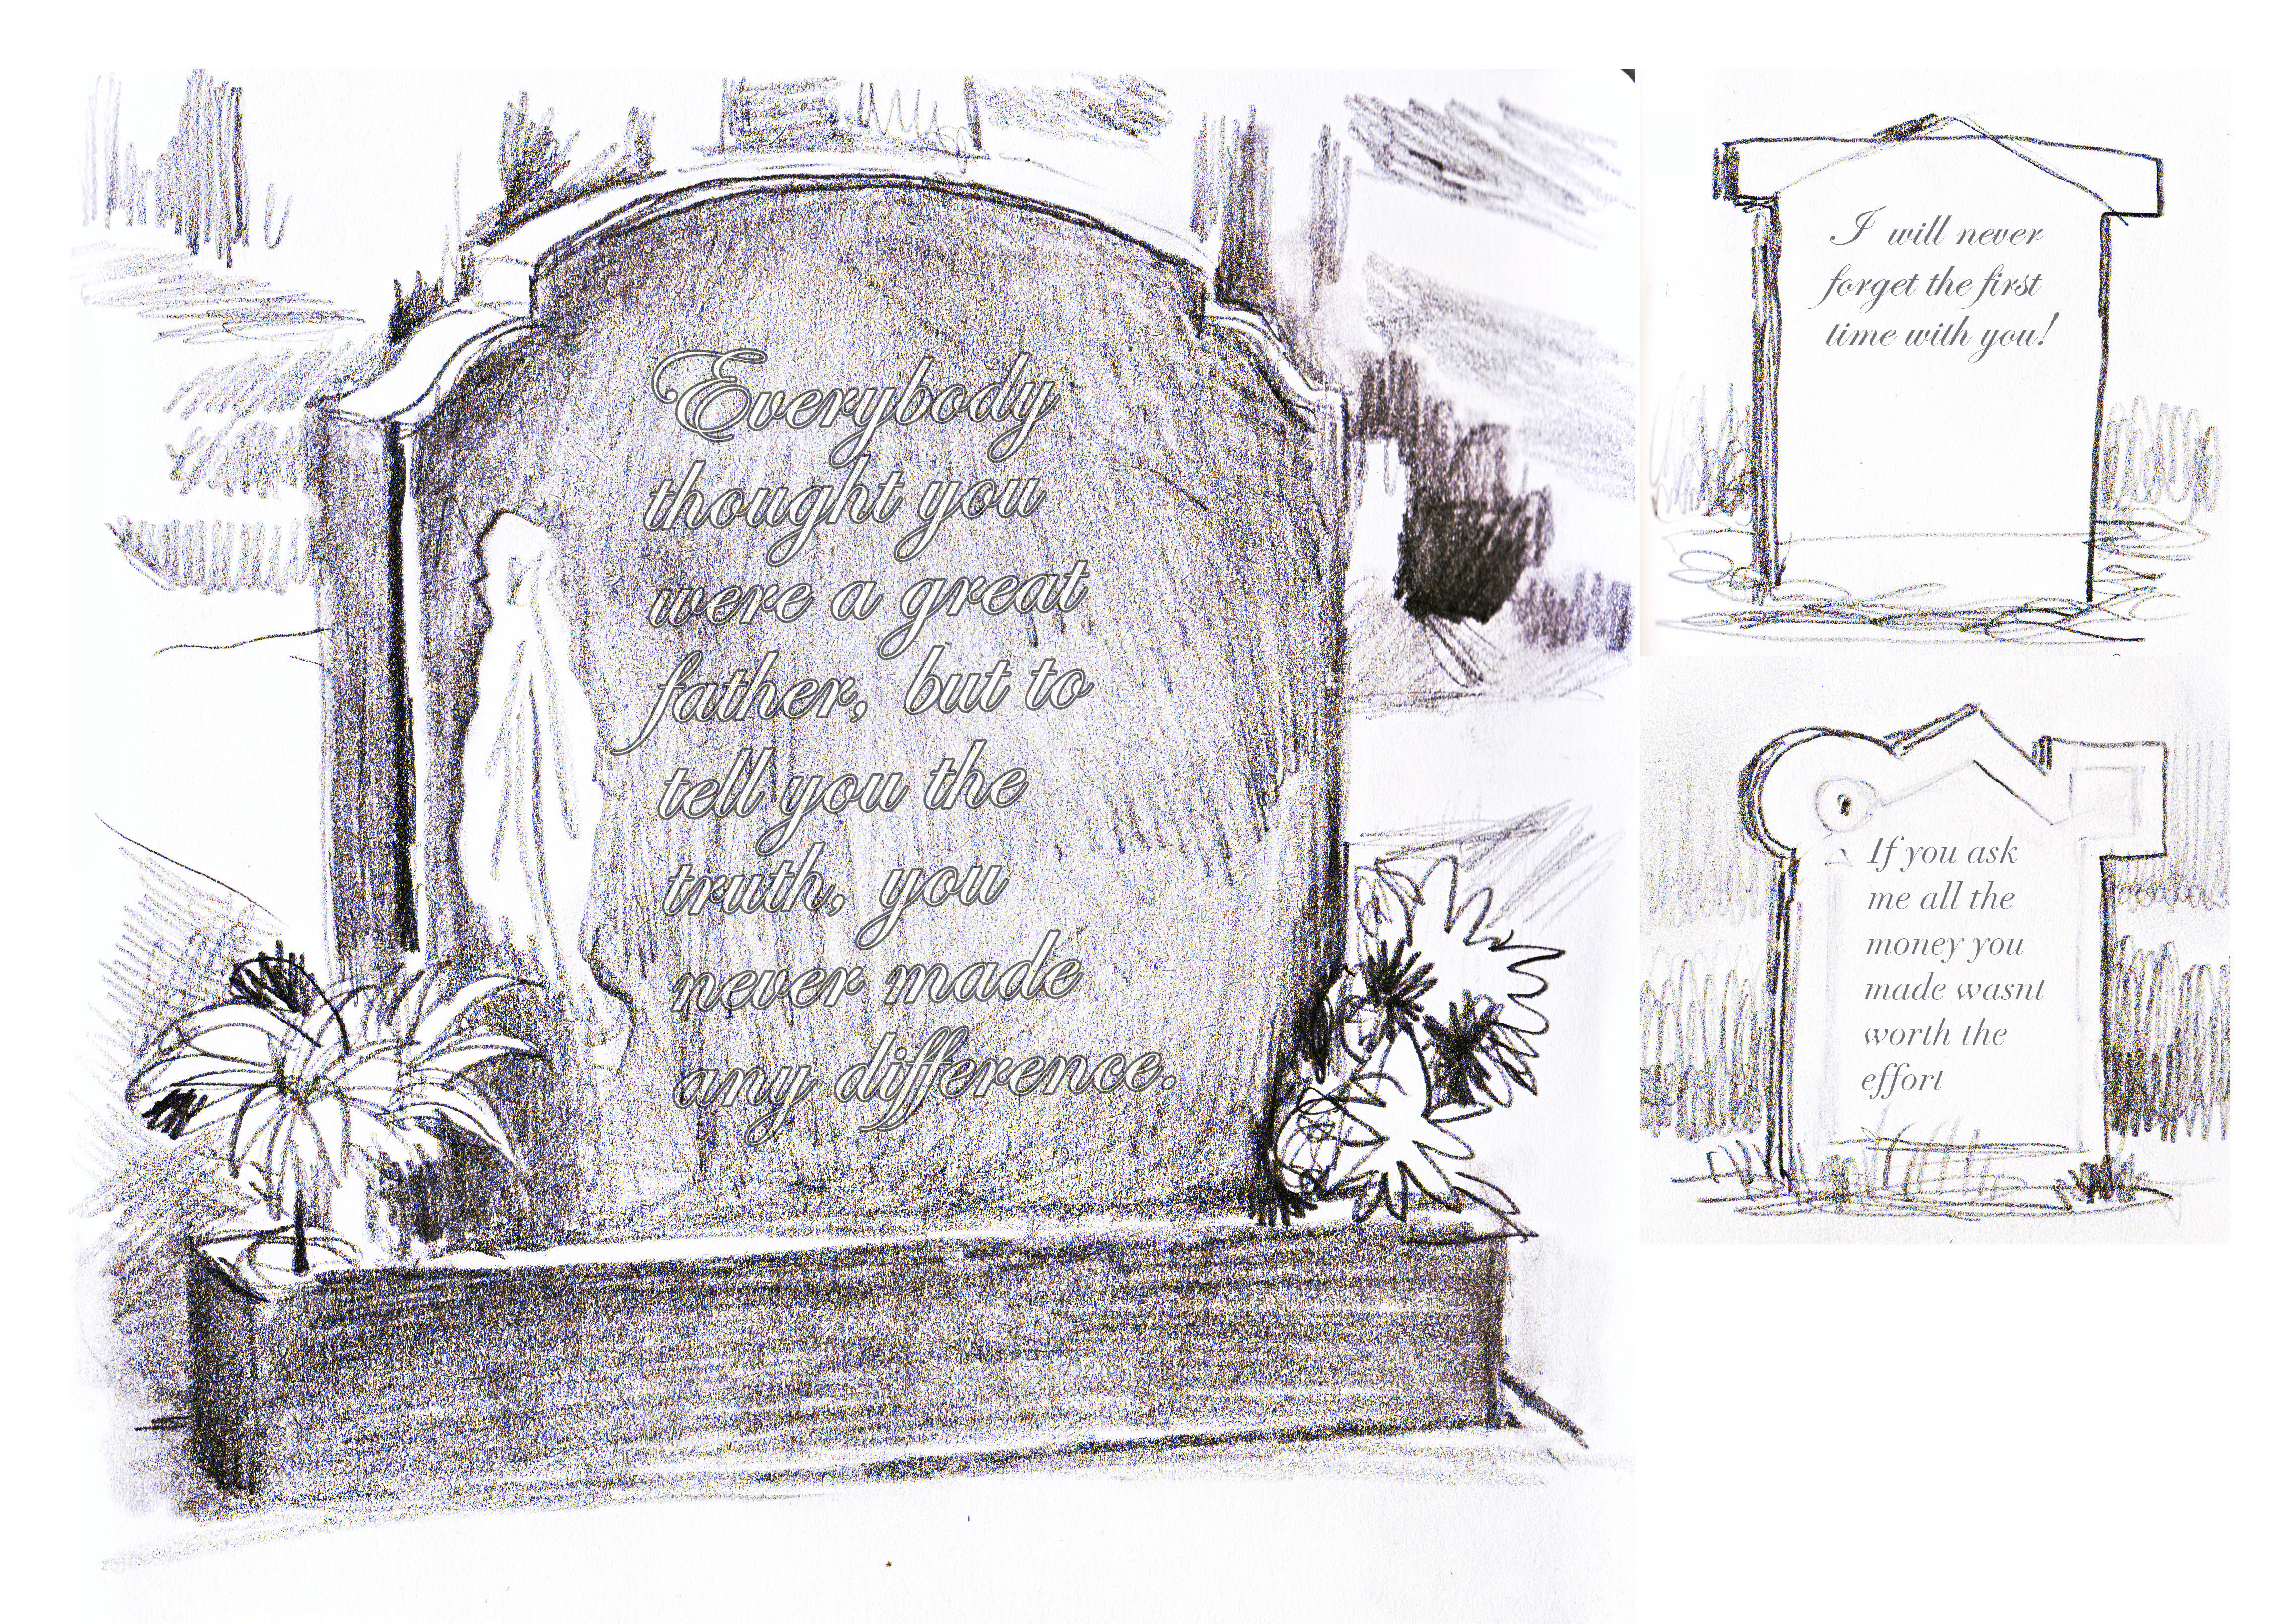 Everybody
thought you
were a great
father, but to
tell you the
truth, you
never made
any difference.
I will never
forget the first
time with you!
If you ask
me all the
money you
made wasnt
worth the
effort